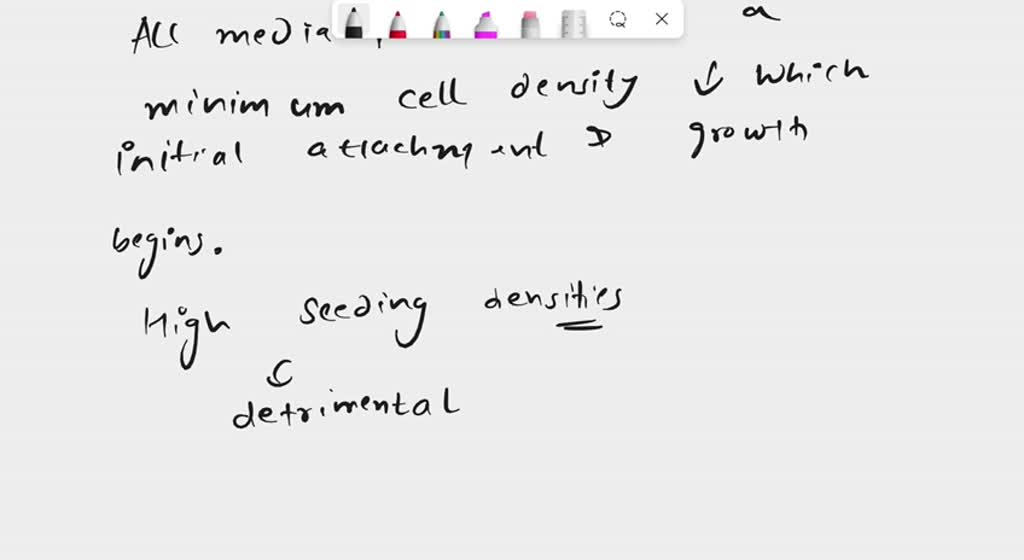 All media a
minimum cell density ↓ which
initial attachment & growth
begins.
High seeding densities
↓
detrimental